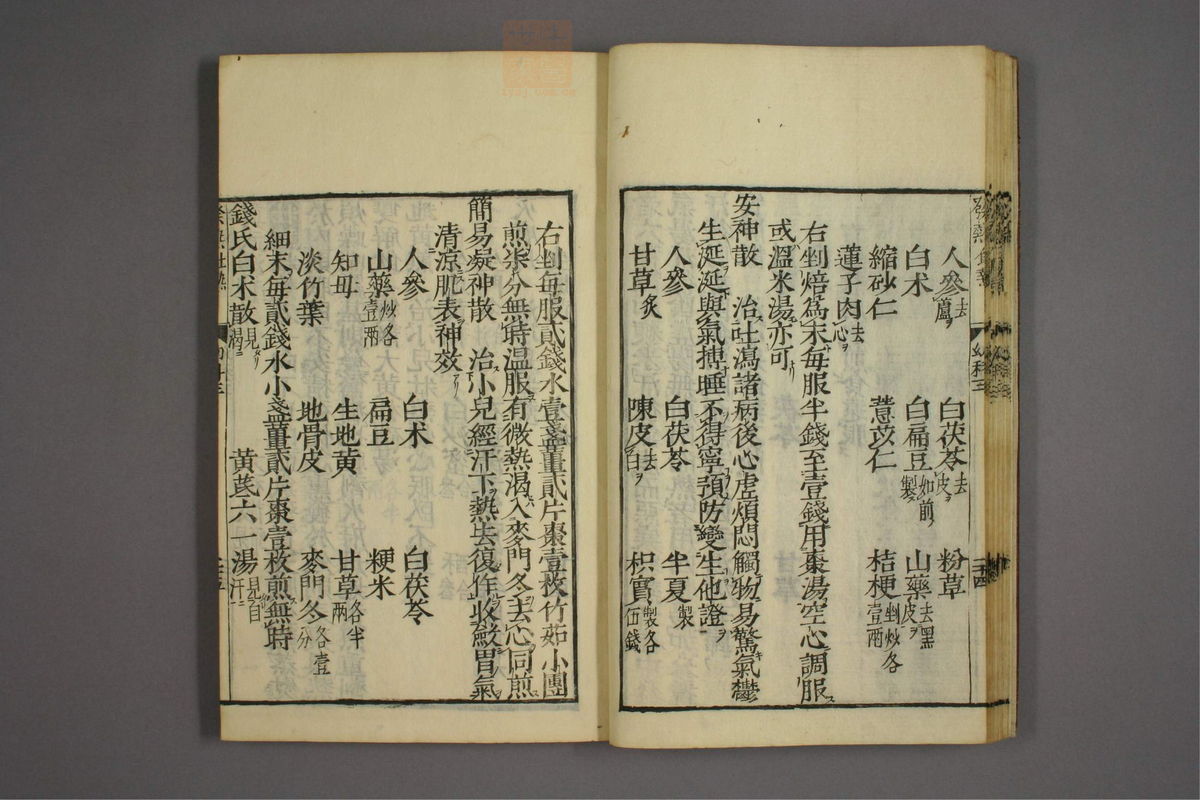 人參去蘆ヲ 白茯苓去皮ヲ 粉草
白朮 白扁豆如前製 山藥去黑皮ヲ
縮砂仁 薏苡仁 桔梗剉炒各壹兩
蓮子肉去心ヲ
右剉焙爲末每服半錢至壹錢用棗湯空心調服
或溫米湯亦可
安神散 治吐瀉諸病後心虛煩悶觸物易驚氣鬱
生涎涎與氣搏睡不得寧預防變生他證
人參 白茯苓 半夏製
甘草炙 陳皮去白ヲ 枳實製各伍錢
右剉每服貳錢水壹盞薑貳片棗壹枚竹茹小團
煎柒分無時温服有微熱渴入麥門冬去心同煎
簡易凝神散 治小兒經汗下熱去復作收斂胃氣
清涼肌表神效
人參 白朮 白茯苓
山藥炒各壹兩 扁豆 粳米
知母 生地黄 甘草各半兩
淡竹葉 地骨皮 麥門冬各壹分
細末每貳錢水小盞薑貳片棗壹枚煎無時
錢氏白朮散見渴 黄芪六一湯見自汗